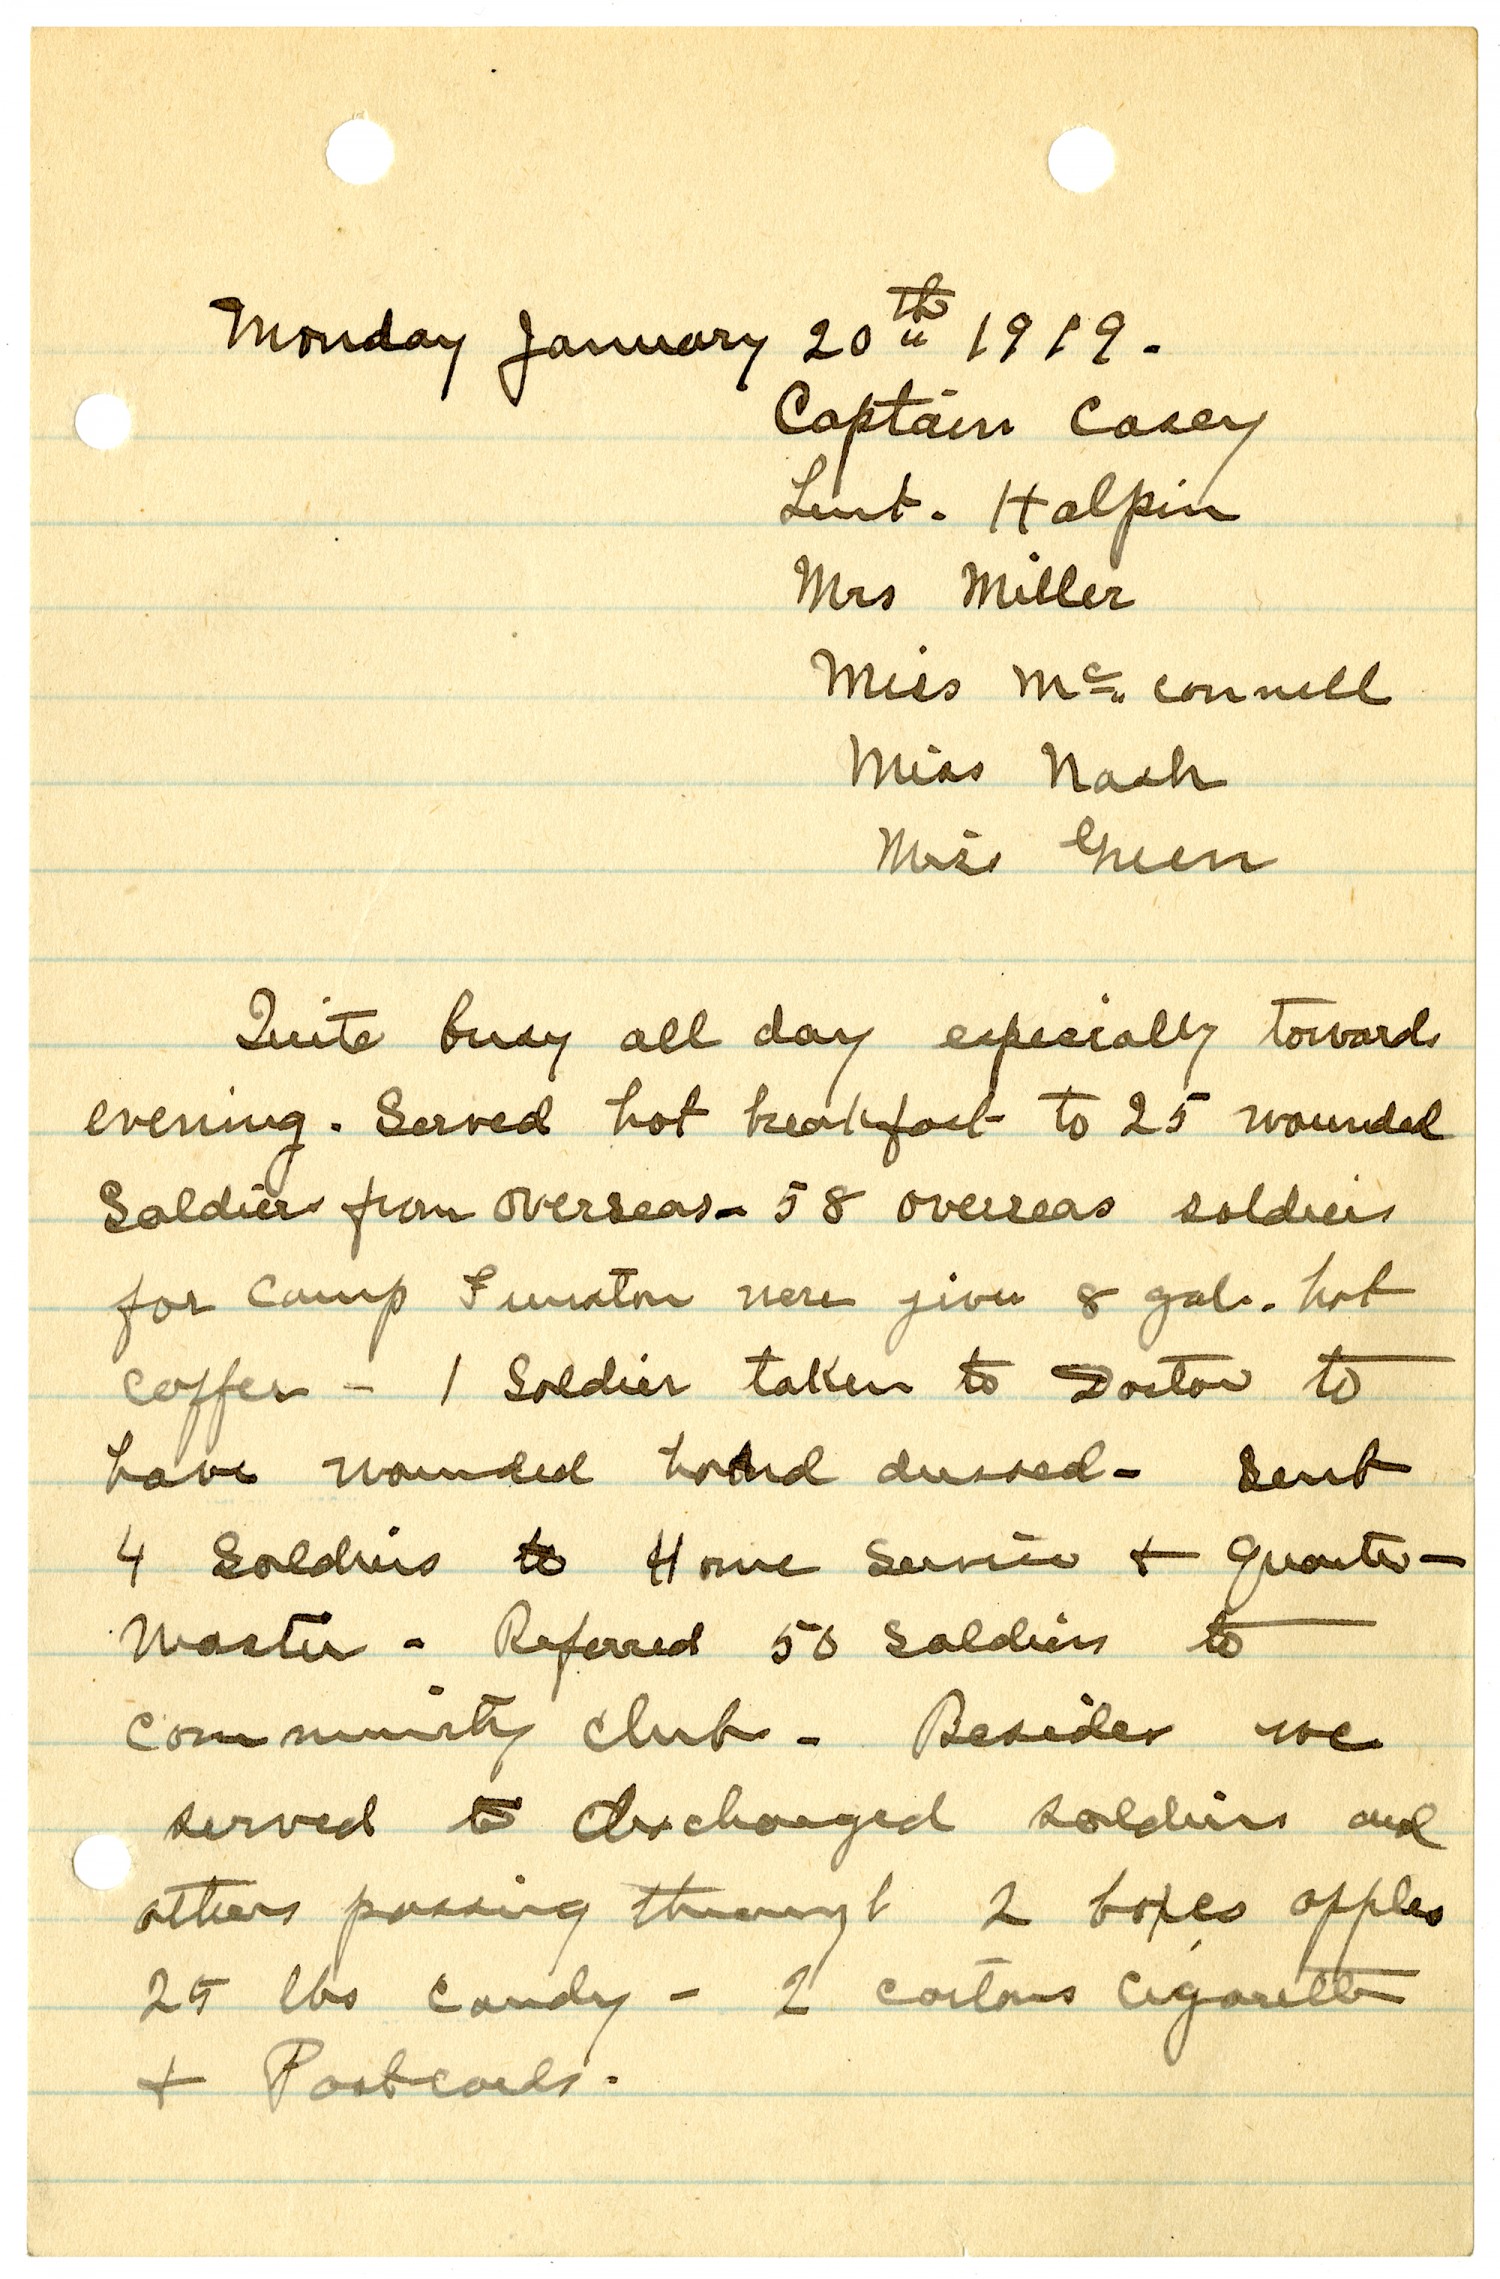 Monday January 20th 1919.
Captain Casey
Lieut. Halpin
Mrs Miller
Miss Mc. Connell
Miss Nash
Miss Green
Quite busy all day especially towards
evening. Served hot breakfast to 25 wounded
Soldiers from overseas - 58 overseas soldiers
for Camp Funston were given 8 gals. hot
coffee - 1 Soldier taken to Doctor to
have wounded hand dressed - Sent
4 Soldiers to Home Service + Quarter-
Master - Referred 50 Soldiers to
community club - Besides we
served to discharged soldiers and
others passing through 2 boxes apples
25 lbs candy - 2 cartons cigarettes
+ Postcards.